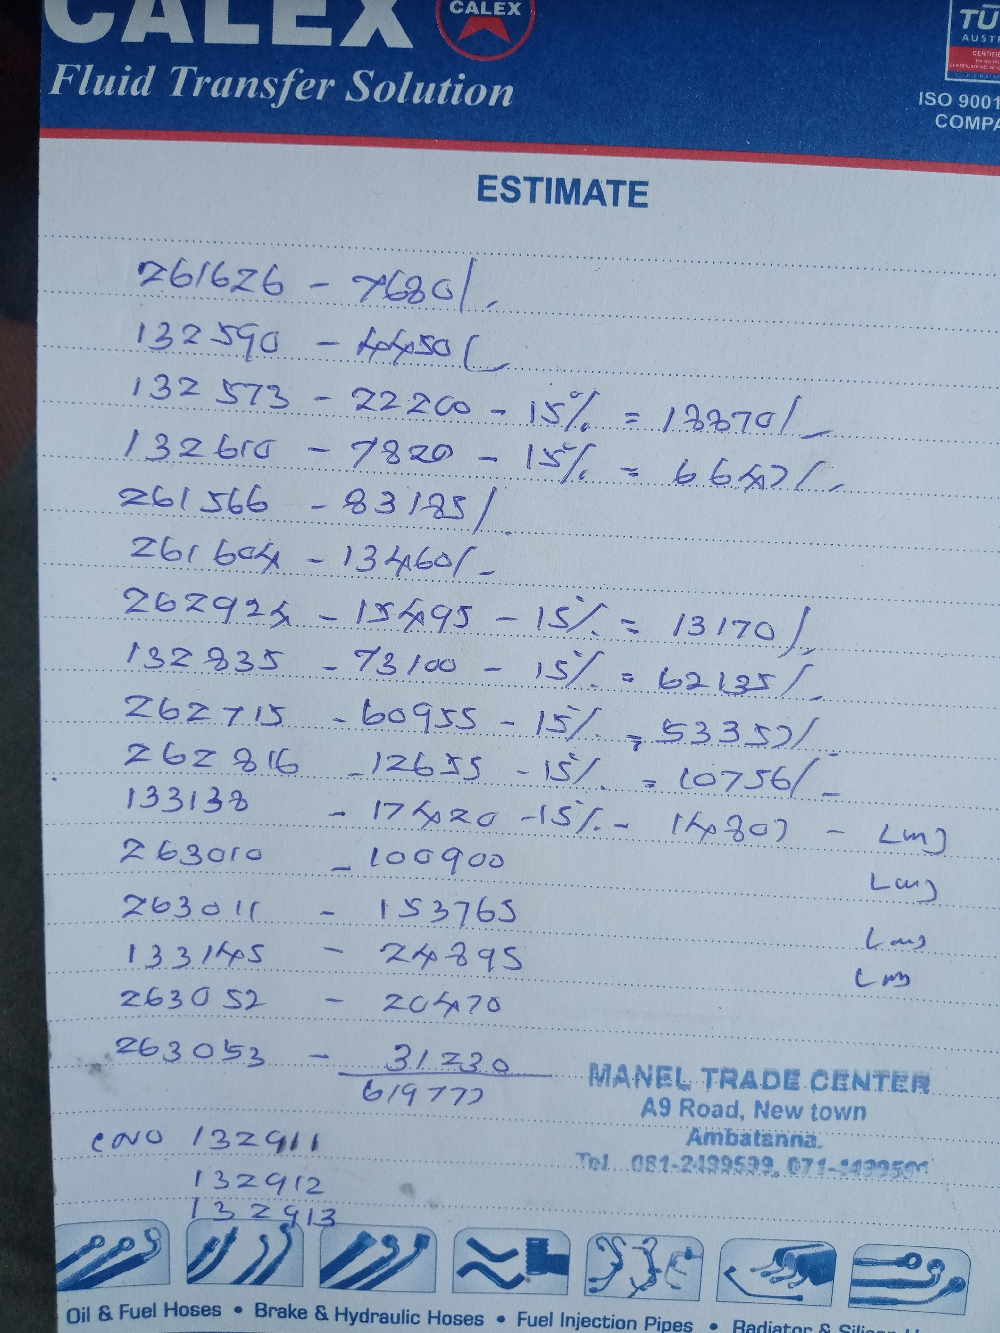 CALEX
CALEX
TÜ
AUSTR
Fluid Transfer Solution
ISO 9001
COMPA
ESTIMATE
261626 - 7680/.
132590 - 4450/-
132573 - 22200 - 15% = 18870/-
132610 - 7820 - 15% = 6647/-
261566 - 83185/.
261604 - 13460/-
262924 - 15495 - 15% = 13170/.
132835 - 73100 - 15% = 62135/.
262715 - 60955 - 15% = 53357/-
262816 - 12655 - 15% = 10756/-
133138 - 17420 - 15% - 14807 -
263010 - 100900
263011 - 153765
133145 - 24895
263052 - 20470
263053 - 31230
619777
MANEL TRADE CENTER
A9 Road, New town
Ambatenna.
Tel 081-2499539, 071-
132911
132912
132913
Oil & Fuel Hoses • Brake & Hydraulic Hoses • Fuel Injection Pipes • Radiator &